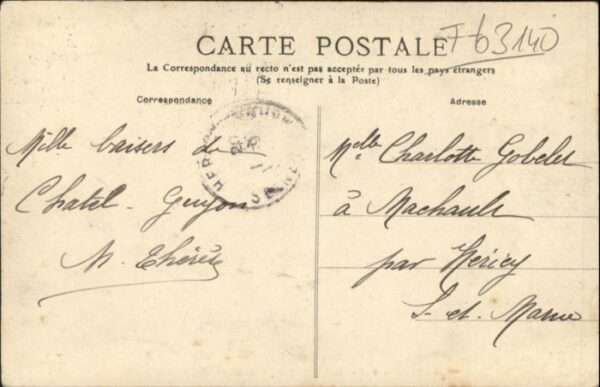 CARTE POSTALE
F 63140
La Correspondance au recto n'est pas acceptée par tous les pays étrangers
(Se renseigner à la Poste)
Correspondance
Adresse
Mille baisers de
Chatel-Guyon
M. Thérèse
Melle Charlotte Gobelet
à Machault
par Héricy
S-et-Marne